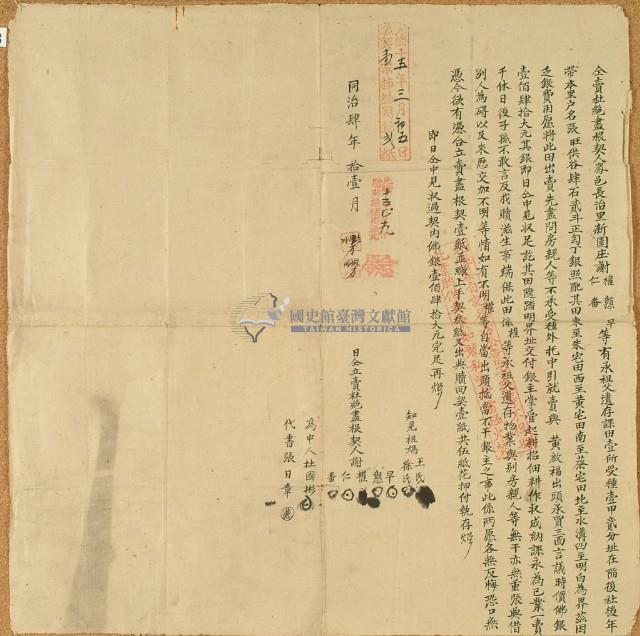 仝立賣杜絕盡根契人鳳邑長治里新園庄謝權懇早仁番等有承祖父遺存課田壹所受種壹甲貳分址在陷後社後年
帶本里戶名張旺供谷肆石貳斗正勻丁銀照配其田東至朱宅田西至黃宅田南至蔡宅田北至水溝四至明白為界茲因
乏銀費用愿將此田出賣先盡問房親人等不承受種外托中引就賣與 黃啟福出頭承買三面言議時價佛銀
壹佰肆拾大元其銀即日仝中見收足訖其田隨踏明界址交付銀主掌管起耕招佃耕作收成納課永為己業一賣
千休日後子孫不敢言及找贖滋生事端保此田係權等承祖父遺存物業與別房親人等無干亦無重張典借
別人為碍以及來歷交加不明等情如有不明權等自當出頭抵當不干銀主之事此係兩愿各無反悔恐口無
憑今欲有憑合立賣盡根契壹紙並繳上手契叁紙又出典贖回契壹紙共伍紙花押付執存炤
即日仝中見收過契內佛銀壹佰肆拾大元完足再炤
王氏
知見祖媽徐氏
早
懇
日仝立賣杜絕盡根契人謝權
仁
番
為中人杜國彬
代書張日章
五年三月
同治肆年拾壹月
國史館臺灣文獻館
TAIWAN HISTORICA